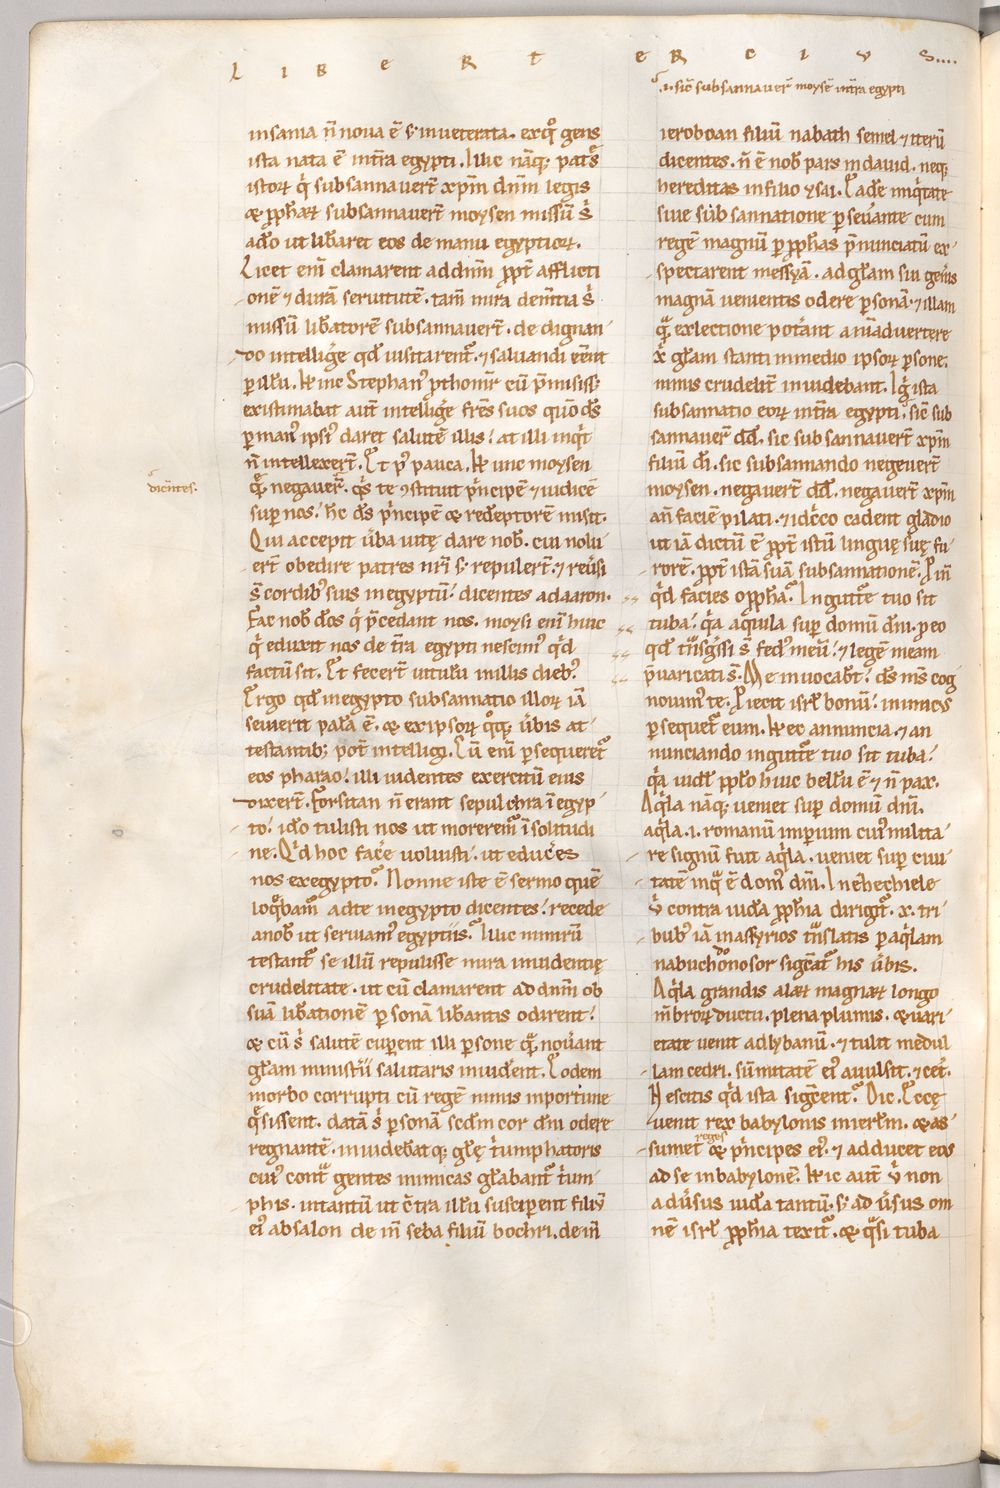 LIBER TERCIVS....
.i. sic̄ subsannauer̄ moysē in tr̄a egypti
insania n̄ noua ē s; inueterata. ex q°̄ gens
ista nata ē in tr̄a egypti. Huic nāq; patr̄s
istoꝝ q̇ subsannauer̄t xp̄m dn̄m legis
& ꝓph̄aꝝ subsannauer̄t moysen missū s̄
a dō ut lib̄aret eos de manu egyptioꝝ.
Licet eni̅ clamarent ad dn̄m ꝓpt̄ afflicti
onē ⁊ durā seruitutē. tam̄ mira dem̄tia s̄
missū lib̄atorē subsannauer̄t. de dignan
do intellig̾e qd̄ uisitarent᷑. ⁊ saluandi eēnt
ꝑ illū. Hinc Stephan᷒ ꝓthom̄r cū p̄misiss;
existimabat aut̄ intellig̾e fr̄es suos qūo d̄s
ꝑ man᷒ ipsi᷒ daret salutē illis; at illi inq̇t
n̄ intellexer̄t. Et p᷒ pauca. Hunc moysen
quē negauer̄. q̇s te ꝯstituit ṗncipē ⁊ iudicē
dicn̄tes.
sup nos; hc̄ d̄s ṗncipē & redēptorē misit.
Qui accepit ūba uitę dare nob̄. cui nolu
er̄t obedire patres nr̄i s; repuler̄t. ⁊ reūsi
s̄ cordib᷒ suis in egyptū; dicentes ad aaron.
Fac nob̄ d̄os q̇ p̄cedant nos. moysi eni̅ huic
q̇ eduxit nos de tr̄a egypti nescim᷒ q̇d
factū sit. Et fecer̄t uitulū in illis dieb᷒.
Ergo qd̄ in egypto subsannatio illoꝝ iā
seuierit palā ē. & ex ipsoꝝ q°q; ūbis at
testantib; pot̄ intelligi. Cū eni̅ ꝑsequeret᷑
eos pharao; illi uidentes exercitū eius
dixer̄t. Forsitan n̄ erant sepulchra ī egyp
to; idō tulisti nos ut morerem᷑ ī solitudi
ne. Q̇d hoc fac̾e uoluisti. ut educ̾es
nos ex egypto? Nonne iste ē sermo quē
loq̄bam᷑ ad te in egypto dicentes; recede
a nob̄ ut seruiam᷒ egyptiis? Huic nimirū
testant᷑ se illū repulisse mira inuidentię
crudelitate. ut cū clamarent ad dn̄m ob
suā lib̄ationē ꝑsonā lib̄antis odirent;
& cū s̄ salutē cuperent illi ꝑsone quā nouāant
gr̄am ministrii salutaris inuid̾ent. Eodem
morbo corrupti cū regē nimis inportune
q̇sissent. datā s̄ ꝑsonā scd̄m cor dn̄i odere
regnantē. inuidebatq; gl̄ę t̄umphatoris
cui᷒ cont̄ gentes inimicas gr̄abant᷑ t̄um
phis. in tantū ut c̄tra illū susciperent filiū
ei᷒ absalon dein̄ seba filiū bochri. dein̄
ieroboan filiū nabath semel ⁊ iterū
dicentes. n̄ ē nob̄ pars in dauid. neq;
hereditas in filio ysai. Eadē iniq̇tate
siue subsannatione ꝑseūante cum
regē magnū ꝑ ꝓph̄as p̄nunciatū ex
spectarent messyā. ad gl̄am sui gen̾is
magnā uenientis odere ꝑsonā. ⁊ illam
quā ex lectione pot̾ant animaduertere
x̄ gl̄am stanti in medio ipsoꝝ ꝑsone;
nimis crudelit̄ inuidebant. Ig̾ ista
subsannatio eoꝝ in tr̄a egypti; sic̄ sub
sannauer̄ dd̄. sic subsannauer̄t xp̄m
filiū d̄i. sic subsannando negeuer̄t
moysen. negauer̄t dd̄. negauer̄t xp̄m
an̄ faciē pilati. ⁊ idc̊co cadent gladio
ut iā dictū ē ꝓpt̄ istū linguę suę fu
rorē. ꝓpt̄ istā suā subsannationē. Proin̄
q̇d facies o ꝓph̄a? In gutt̾e tuo sit
tuba; q̇a aq̇uila sup domū dn̄i. ꝓ eo
qd̄ tn̄sg̾ssi s̄ fed᷒ meū; ⁊ legē meam
p̄uaricati s̄. Me inuocab̄t; d̄s m̄s cog
nouim᷒ te. Proiecit isrl̄ bonū; inimic᷒
ꝑsequet᷑ eum. Hec annuncia. ⁊ an
nunciando in gutt̾e tuo sit tuba;
q̇a uid̄l ppl̄o huic bellū ē ⁊ n̄ pax.
Aq̇la nāq; ueniet sup domū dn̄i.
aq̇la .i. romanū imperiū cui᷒ milita
re signū fuit aq̇la. ueniet sup ciui
tatē in qua ē dom᷒ dn̄i. In ehechiele
ū contra iuda ꝓph̄ia dirigit᷑. x. tri
bub᷒ iā in assyrios tn̄slatis ꝑ aq̇lam
nabuchodonosor sigc̄at᷑ his ūbis.
Aq̇la grandis alaꝝ magnaꝝ longo
m̄broꝝ ductu. plena plumis. & uari
etate uenit ad lybanū. ⁊ tulit medul
lam cedri. sūmitatē ei᷒ auulsit. ⁊ cet̄.
Nescitis q̇d ista sigc̄ent? Dic. Eccę
uenit rex babylonis in ierl̄m. & as
sumet regē & ṗncipes ei᷒. ⁊ adducet eos
ad se in babylonē. Hic aut̄ ū non
adūsus iuda tantū. s; adūsus om
nē isrl̄ ꝓph̄ia texit᷑. & q̇si tuba